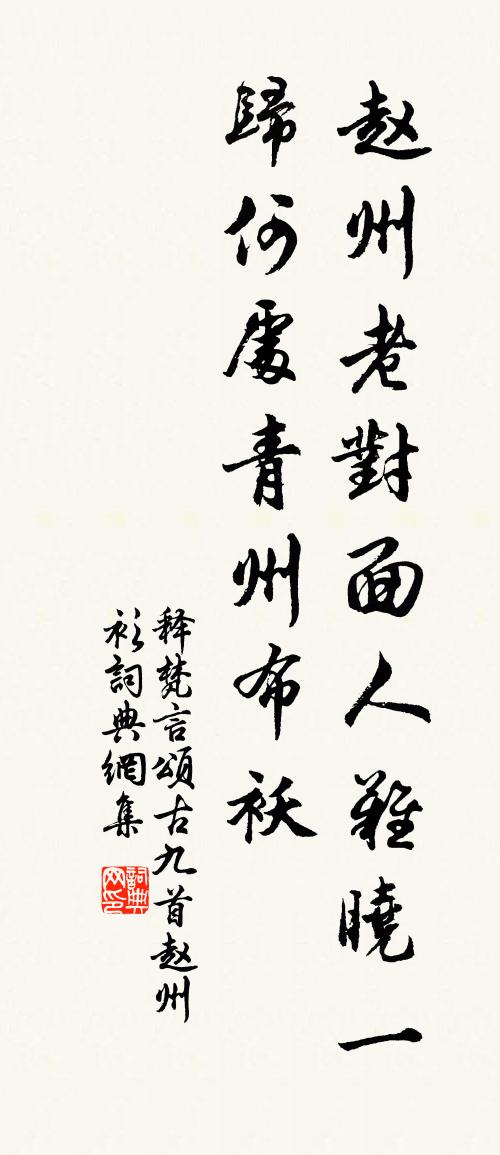 赵州老對面人難曉一
歸何處青州布袄
释梵言頌古九首赵州
衫詞典網集
詞典网印